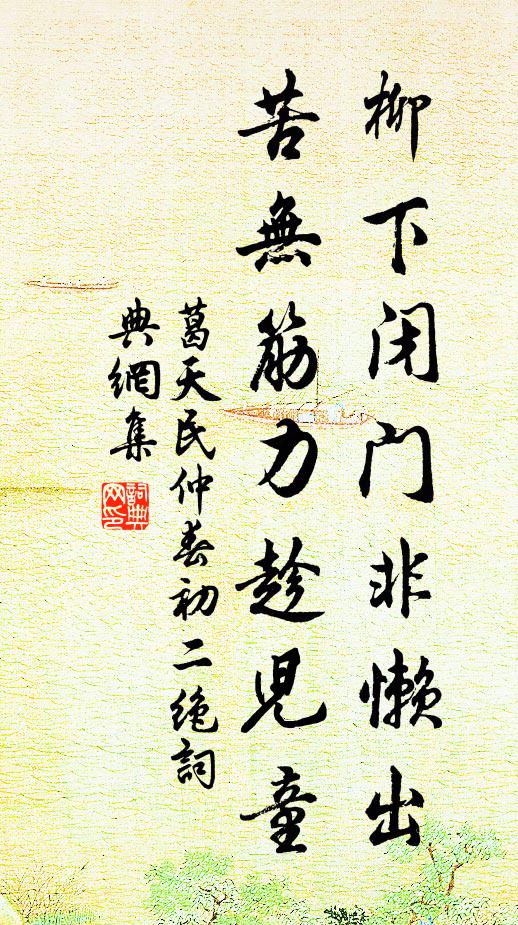 柳下闭门非懒出
苦無筋力趁児童
葛天民仲春初二绝詞
典網集
詞典
网印